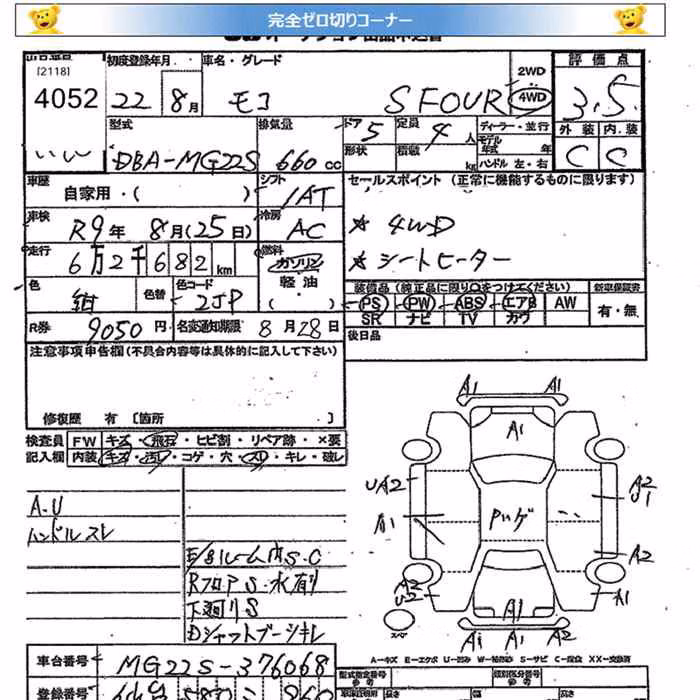 完全ゼロ切りコーナー
[2118]
4052
初度登録年月
22 8月
車名・グレード
モコ S FOUR
2WD
4WD
評価点
3.5
型式
DBA-MG22S
排気量
660 cc
ドア 5
定員 4 人
形状
積載 kg
ディーラー・並行
モデル年式 年
ハンドル 左・右
外装 内装
C C
車歴
自家用・( )
シフト
IAT
セールスポイント (正常に機能するものに限ります)
車検
R9年 8月(25日)
冷房
AC
★ 4WD
★ シートヒーター
走行
6万2千682km
燃料
ガソリン
軽油
・( )
色
紺
色替
色コード
2JP
装備品(純正品に限り○をつけてください)
新車保証書
PS PW ABS エアB AW
有・無
SR ナビ TV カワ
R券
9050円
名変通知期限 8月28日
後日品
注意事項申告欄(不具合内容等は具体的に記入して下さい)
修復歴 有 [箇所 ]
検査員
記入欄
FW キズ・飛石・ヒビ割・リペア跡・×要
内装 キズ・汚れ・コゲ・穴・スリ・キレ・破レ
A.U
ハンドルスレ
E/gルーム内S.C
RフロアS・水有り
下廻りS
Dシャフトブーツキレ
A1 A1
A1
UA2
A2
U1
A1
Pハゲ
A2
A2
U2
A1
A1
スペア
A1 A1 A2
A-キズ E-エクボ U-凹み W-補修跡 S-サビ C-腐食 XX-交換済
車台番号
MG22S-376068
登録番号
型式指定番号
類別区分番号